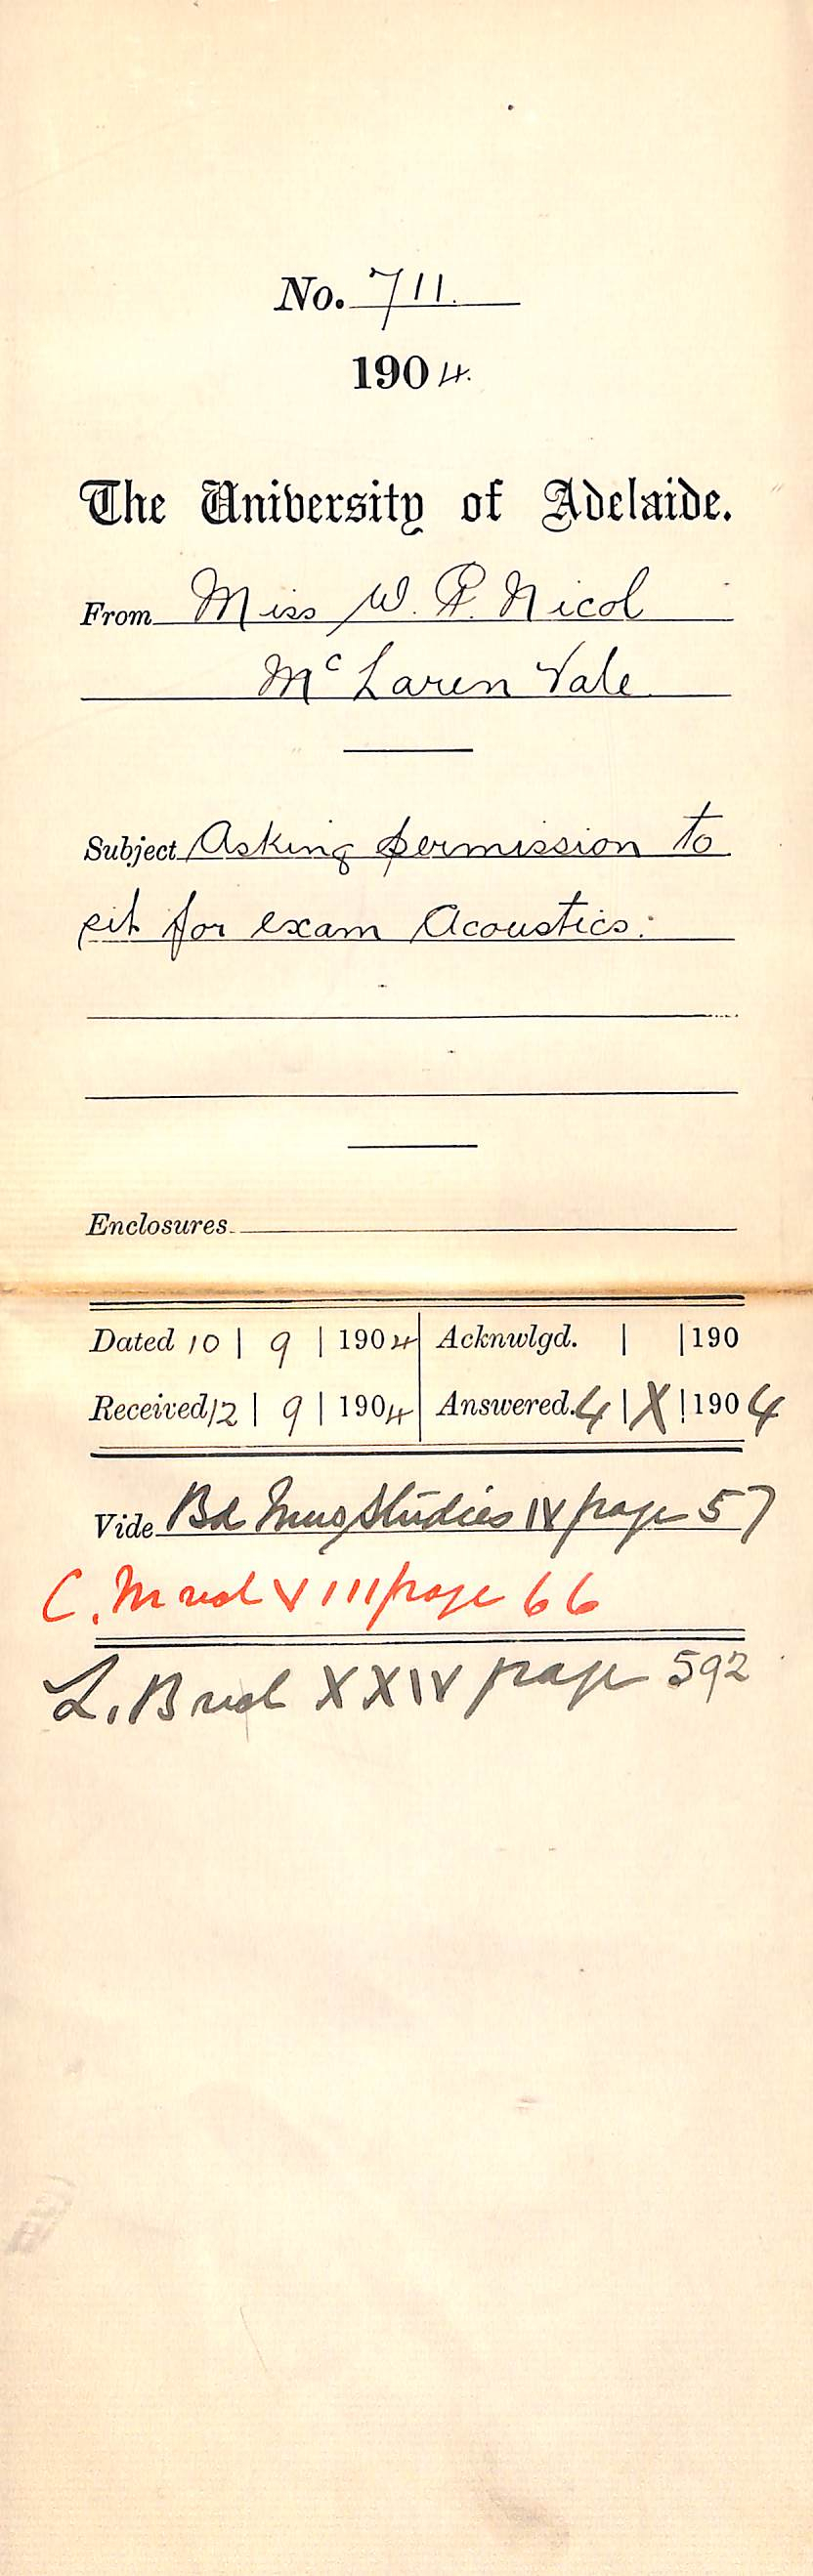 No. 711.
1904.
The University of Adelaide.
From Miss W. P. Nicol
McLaren Vale
Subject Asking permission to
sit for exam Acoustics.
Enclosures
Dated 10 | 9 | 1904 Acknwlgd. | | 190
Received 12 | 9 | 1904 Answered. 4 | X | 1904
Vide Bd Mus Studies IV page 57
C. M vol VIII page 66
L. B vol XXIV page 592